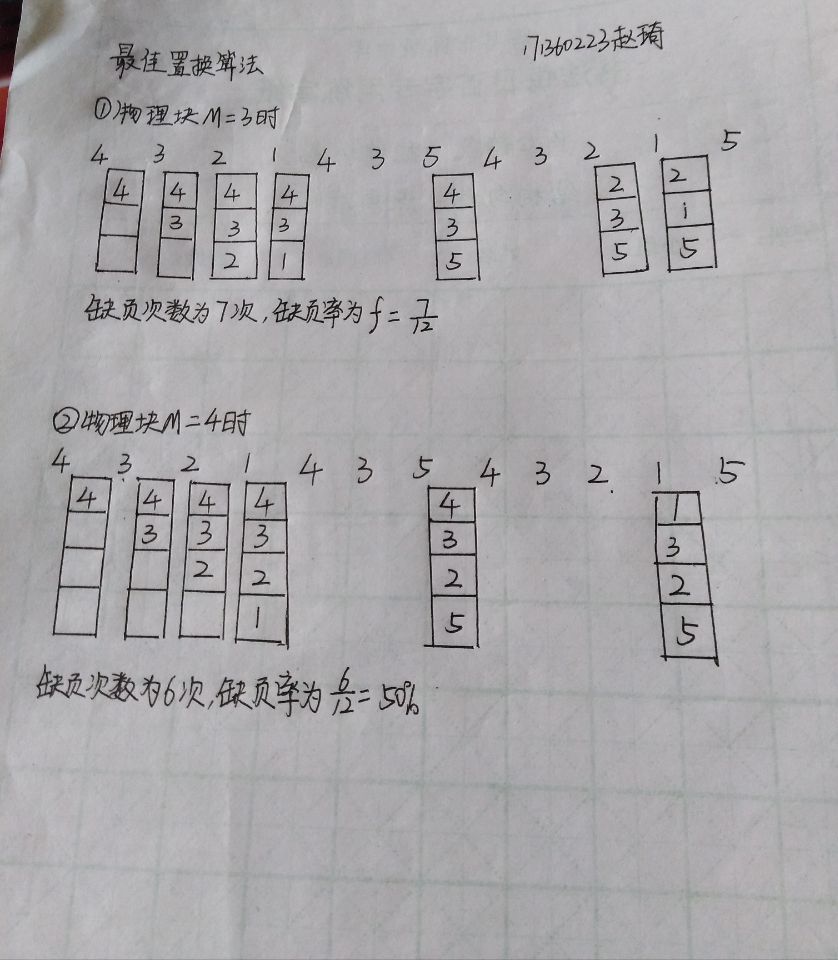 17360223赵琦
最佳置换算法
①物理块M=3时
4 3 2 1 4 3 5 4 3 2 1 5
4 4 4 4 4 2 2
3 3 3 3 3 1
2 1 5 5 5
缺页次数为7次,缺页率为f=7/12
②物理块M=4时
4 3 2 1 4 3 5 4 3 2 1 5
4 4 4 4 4 1
3 3 3 3 3
2 2 2 2
1 5 5
缺页次数为6次,缺页率为6/12=50%